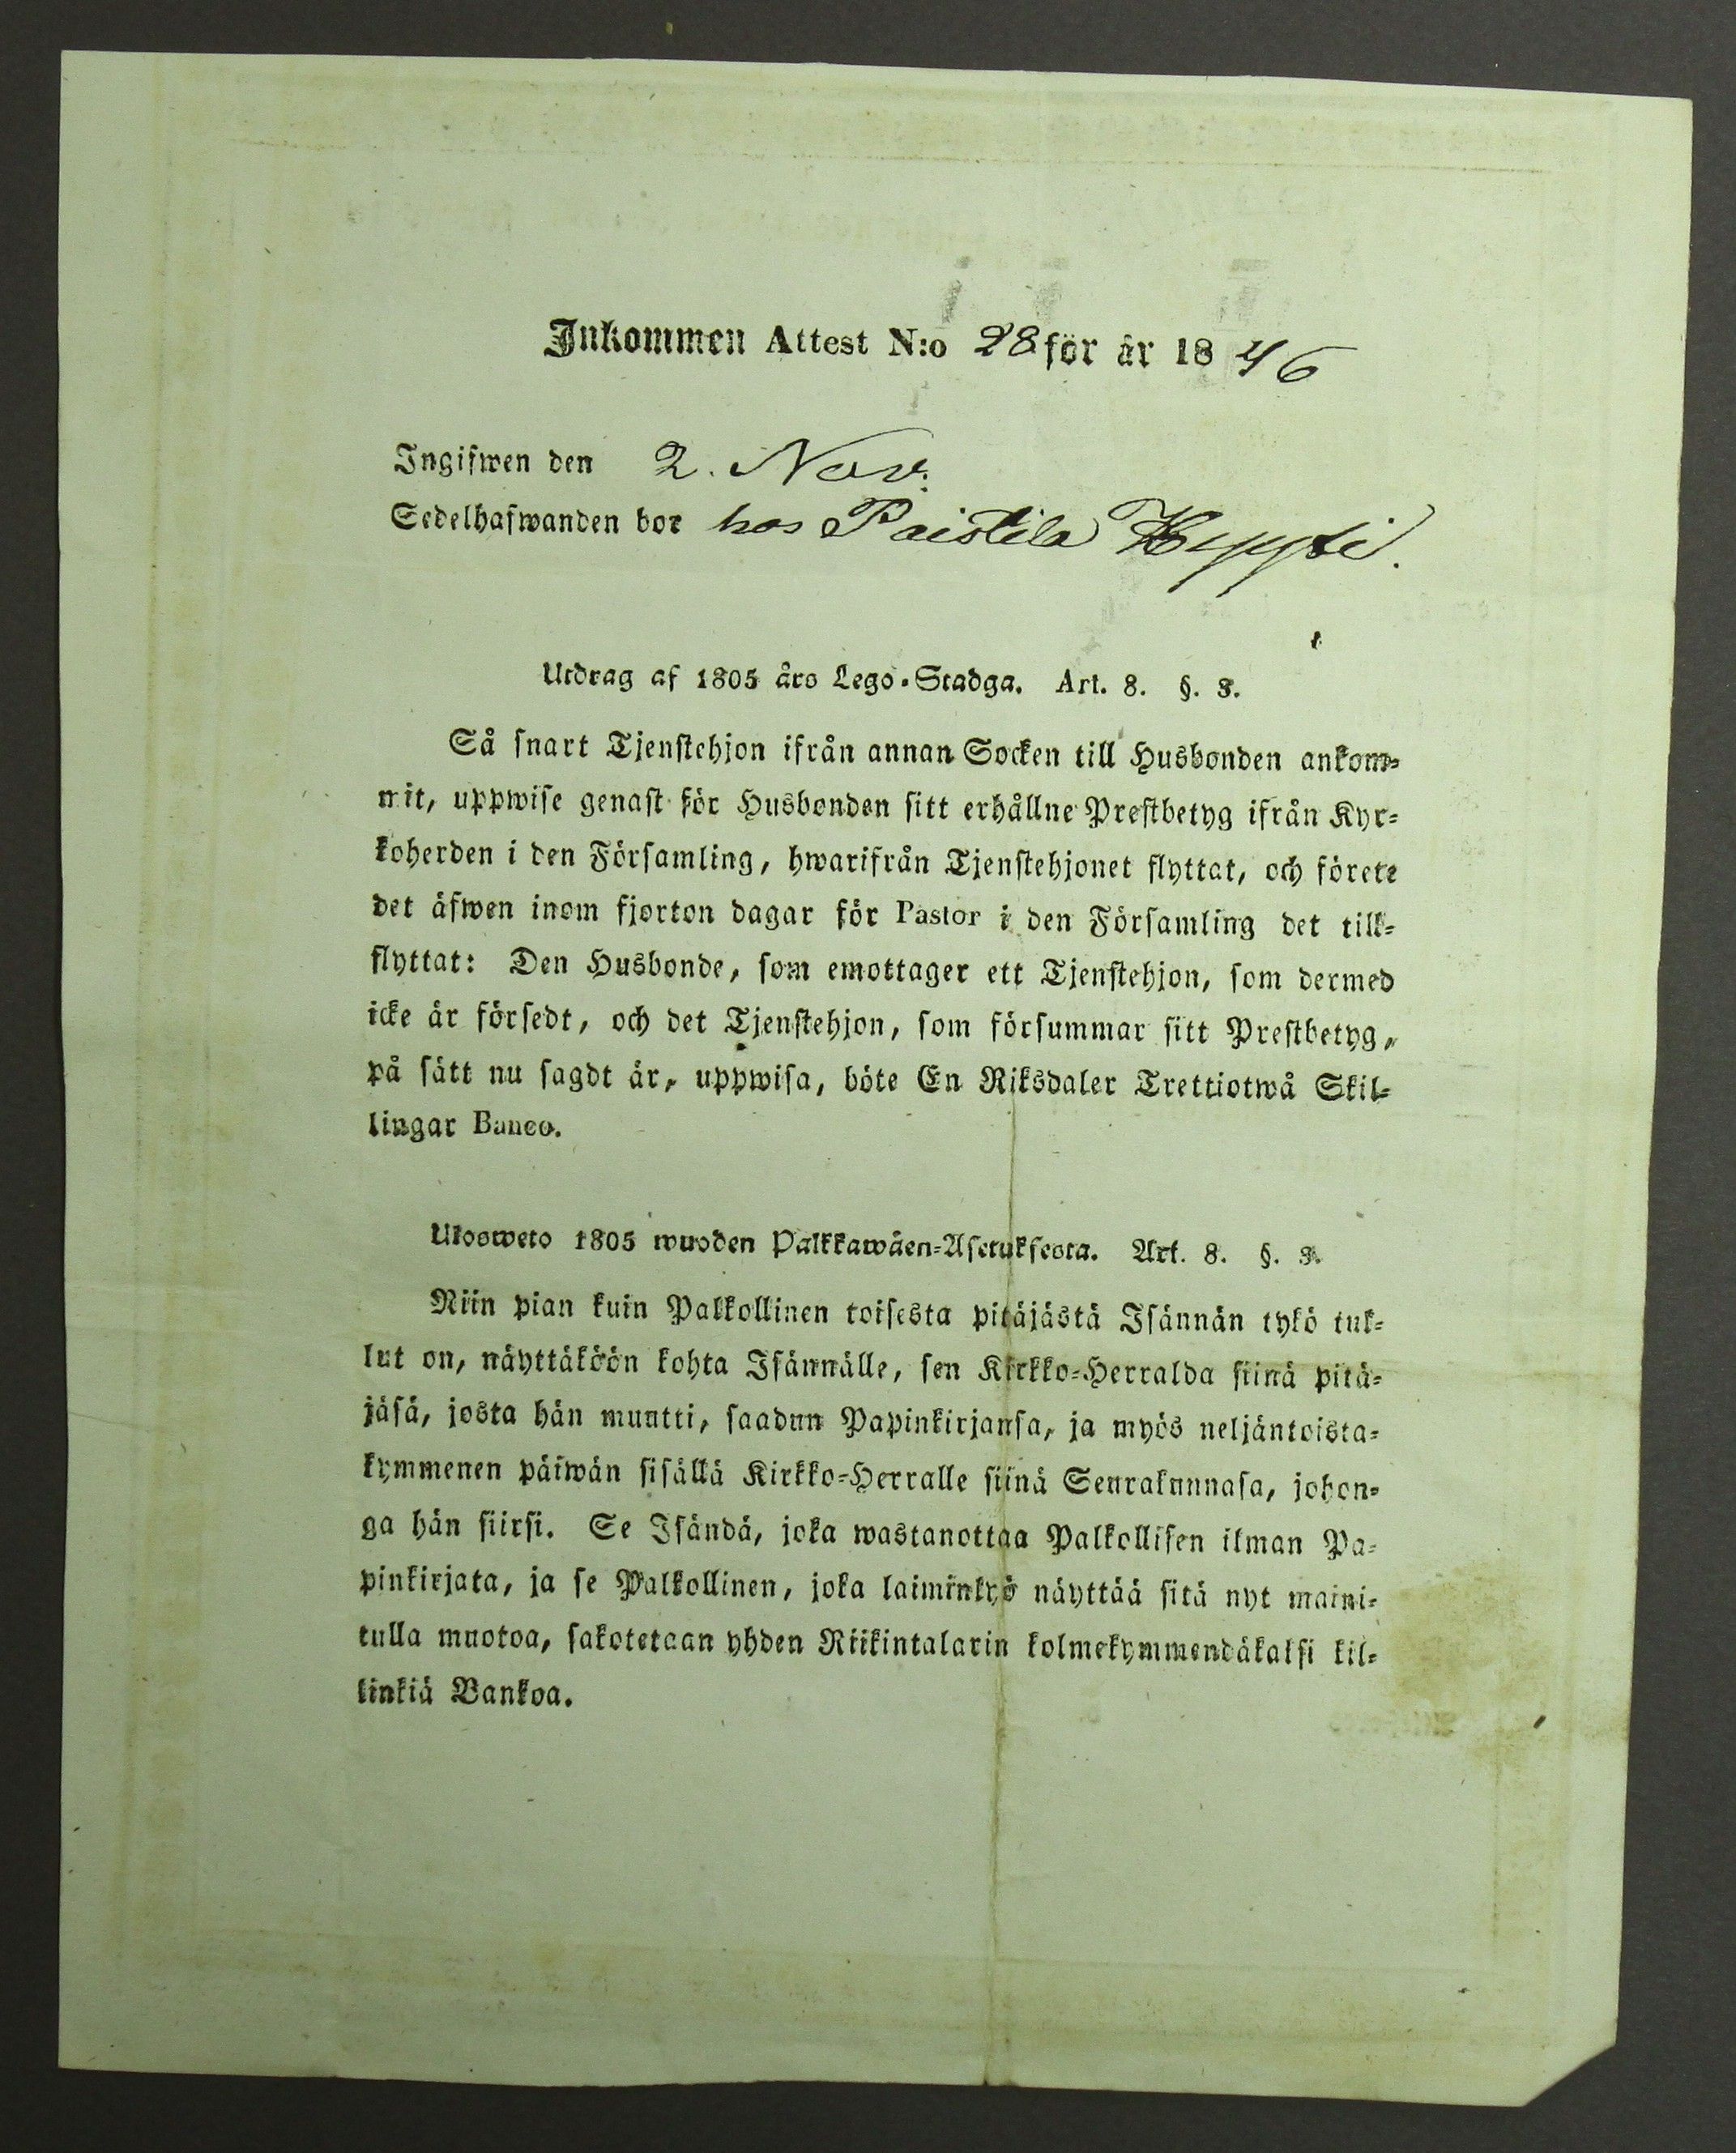 Inkommen Attest N:o 28 för år 1846
Ingifwen den 2. Nov.
Sedelhafwanden bor hos Paistila
Utdrag af 1805 års Lego-Stadga. Art. 8. §. 3.
Så snart Tjenstehjon ifrån annan Socken till Husbonden ankom-
mit, uppwise genast för Husbonden sitt erhållne Prestbetyg ifrån Kyr-
koherden i den Församling, hwarifrån Tjenstehjonet flyttat, och förete
det äfwen inom fjorton dagar för Pastor i den Församling det till-
flyttat: Den Husbonde, som emottager ett Tjenstehjon, som dermed
icke är försedt, och det Tjenstehjon, som försummar sitt Prestbetyg,
på sätt nu sagdt är, uppwisa, böte En Riksdaler Trettiotwå Skil-
lingar Banco.
Ulosweto 1805 wuoden Palkkawäen-Asetuksesta. Art. 8. §. 3.
Niin pian kuin Palkollinen toisesta pitäjästä Isännän tykö tuk-
lut on, näyttäköön kohta Isännälle, sen Kirkko-Herralda siinä pitä-
jäsä, josta hän muutti, saadun Papinkirjansa, ja myös neljäntoista-
kymmenen päiwän sisällä Kirkko-Herralle siinä Seurakunnasa, johon-
ga hän siirsi. Se Isändä, joka wastanottaa Palkollisen ilman Pa-
pinkirjata, ja se Palkollinen, joka laiminlyö näyttää sitä nyt maini-
tulla muotoa, sakotetaan yhden Riikintalarin kolmekymmendäkaksi kil-
linkiä Bankoa.